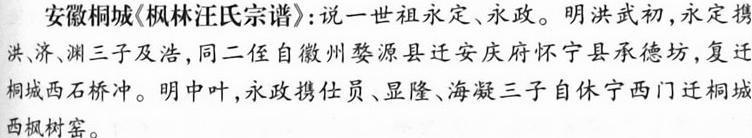 安徽桐城《枫林汪氏宗谱》:说一世祖永定、永政。明洪武初,永定携
洪、济、渊三子及浩,同二侄自徽州婺源县迁安庆府怀宁县承德坊,复迁
桐城西石桥冲。明中叶,永政携仕员、显隆、海凝三子自休宁西门迁桐城
西枫树窑。